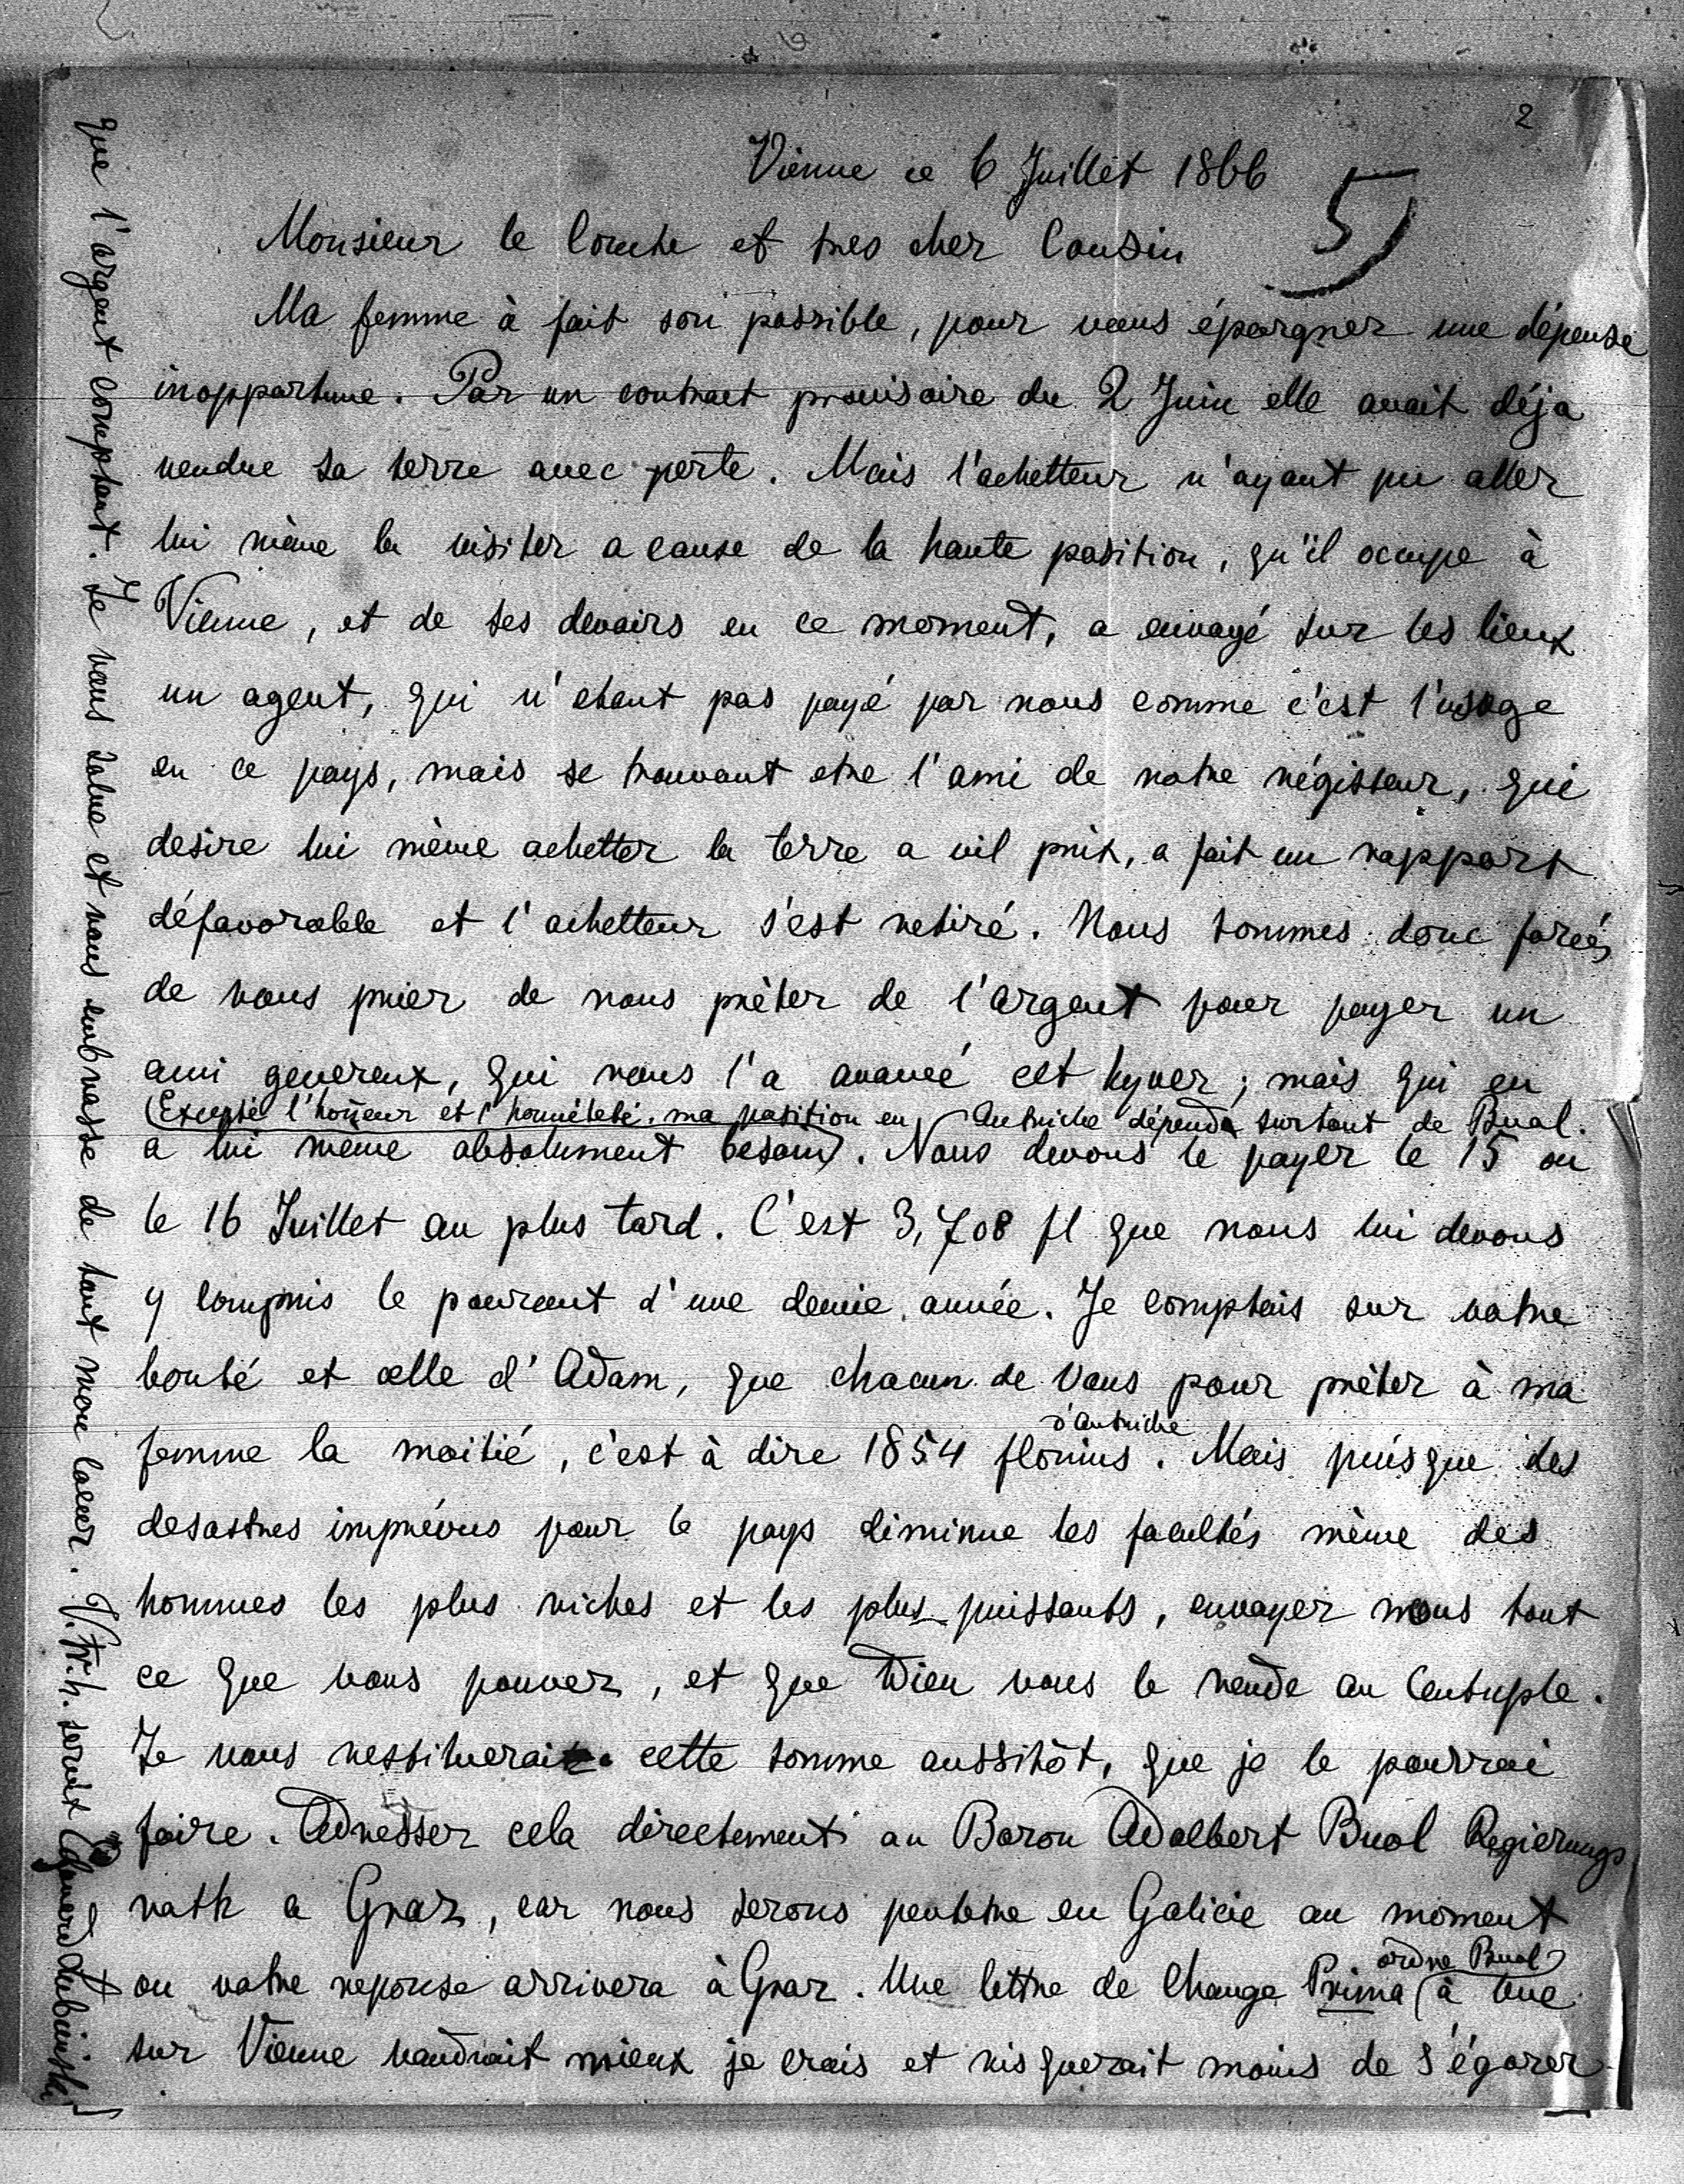 2
Vienne ce 6 Juillet 1866
5
Monsieur le Comte et tres cher Cousin
Ma femme à fait son possible, pour vous épargner une dépense
inopportune. Par un contract provisoire du 2 Juin elle avait déja
vendue sa terre avec perte. Mais l'achetteur n'ayant pu aller
lui même la visiter a cause de la haute position, qu'il occupe à
Vienne, et de ses devoirs en ce moment, a envoyé sur les lieux
un agent, qui n'etant pas payé par nous comme c'est l'usage
en ce pays, mais se trouvant etre l'ami de notre régisseur, qui
desire lui même achetter la terre a vil prix, a fait un rapport
défavorable et l'achetteur s'est retiré. Nous sommes donc forcés
de vous prier de nous prèter de l'argent pour payer un
ami genereux, qui nous l'a avancé cet hyver; mais qui en
(Excepté l'honneur et l'honnêteté, ma position en Autriche dépend surtout de Buol.
a lui meme absolument besoin). Nous devons le payer le 15 ou
le 16 Juillet au plus tard. C'est 3,708 fl que nous lui devons
y compris le pourcent d'une demie année. Je comptais sur votre
bonté et celle d'Adam, que chacun de Vous pour prèter à ma
d'Autriche
femme la moitié, c'est à dire 1854 florins. Mais puisque des
desastres imprévus pour le pays diminue les facultés même des
hommes les plus riches et les plus puissants, envoyer nous tout
ce que vous pouvez, et que Dieu vous le rende au Centuple.
Je vous restituerai cette somme aussitôt, que je le pourrai
faire. Adresser cela directement au Baron Adalbert Buol Regierungs
rath a Graz, car nous serons peutetre en Galicie au moment
ou votre reponse arrivera à Graz. Une lettre de Change Prima (à vue
ordre Buol
sur Vienne vaudrait mieux je crois et risquerait moins de s'égarer
que l'argent comptant. Je vous salue et vous embrasse de tout mon coeur. V. tr. h. servit Edouard Lubienski